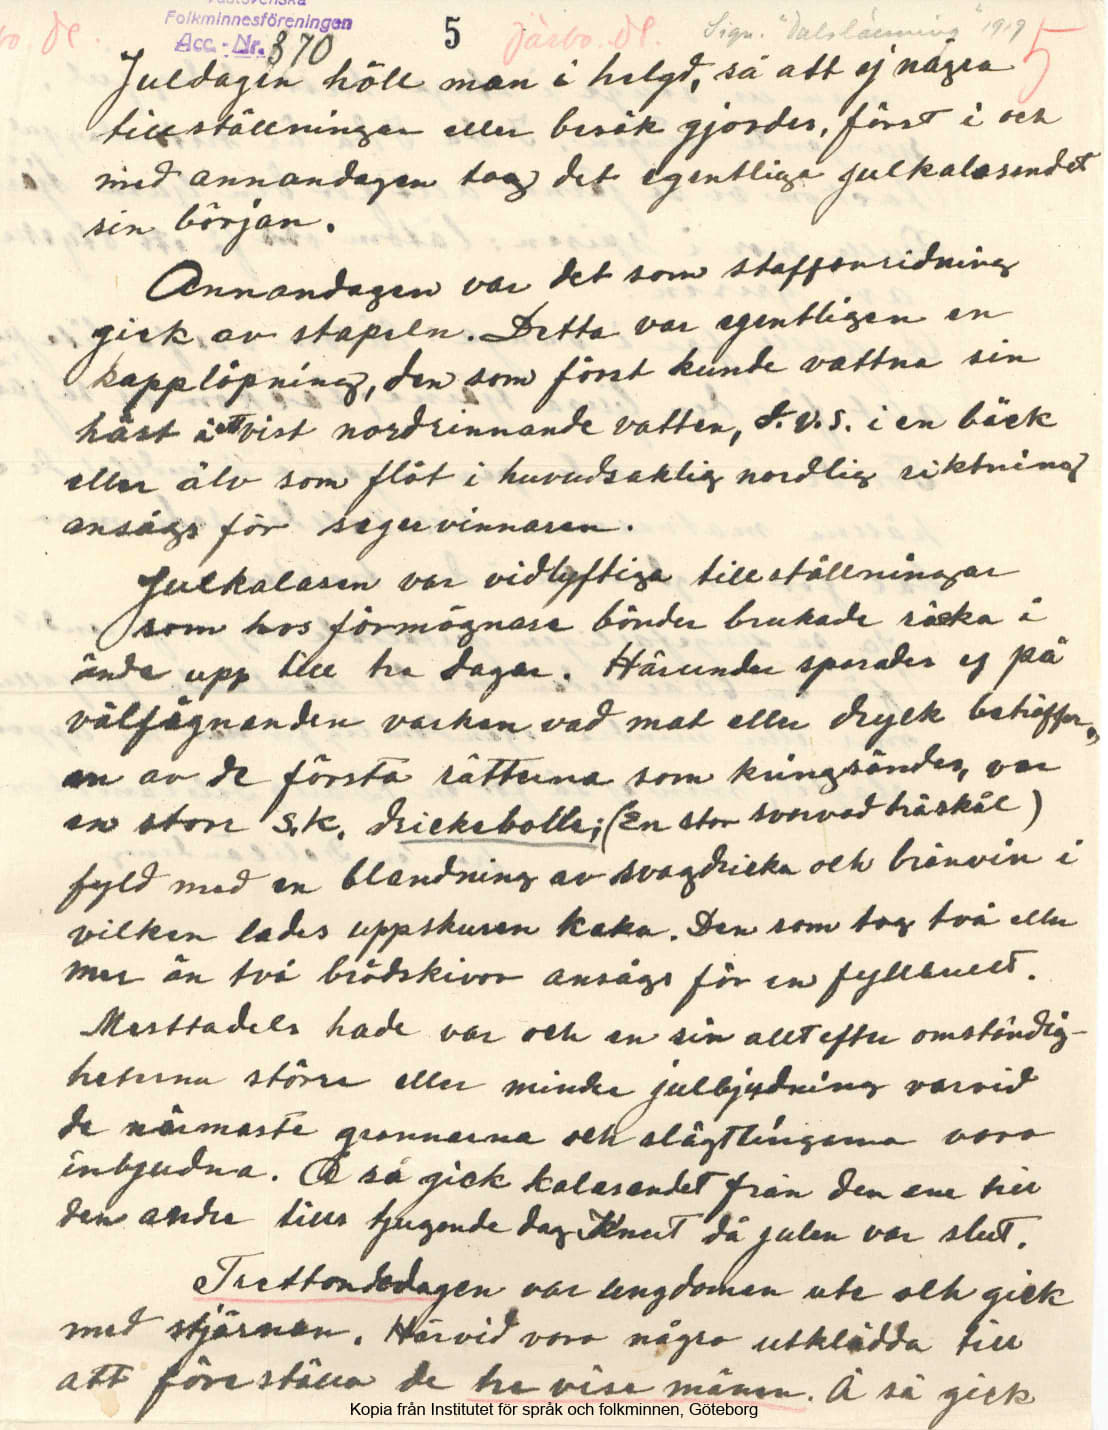 Västsvenska
Folkminnesföreningen
Acc.-Nr. 870
5
Järbo. Dl.
Sign. "Dalslänning" 1919
5
Juldagen höll man i helgd, så att ej några
tillställningar eller besök gjordes, först i och
med annandagen tog det egentliga julkalasendet
sin början.
Annandagen var det som staffansridning
gick av stapeln. Detta var egentligen en
kapplöpning, den som först kunde vattna sin
häst i ett vist nordrinnande vatten, d.v.s. i en bäck
eller älv som flöt i huvudsaklig nordlig riktning
ansågs för segervinnaren.
Julkalasen var vidlyftiga tillställningar
som hos förmögnare bönder brukade räcka i
ända upp till tre dagar. Härunder sparades ej på
välfägnanden varken vad mat eller dryck beträffar,
en av de första rätterna som kringsändes, var
en stor s.k. drickebolle; (En stor svarvad träskål)
fyld med en blandning av svagdricka och bränvin i
vilken lades uppskuren kaka. Den som tog två eller
mer än två brödskivor ansågs för en fyllhult.
Mesttadels hade var och en sin allt efter omständig-
heterna större eller mindre julbjudning varvid
de närmaste grannarna och slägtingarna voro
inbjudna. Å så gick kalasandet från den ene till
den andre tills tjugonde dag Knut då julen var slut.
Trettondedagen var ungdomen ute och gick
med stjärnan. Härvid voro några utklädda till
att föreställa de tre vise männen. Å så gick
Kopia från Institutet för språk och folkminnen, Göteborg